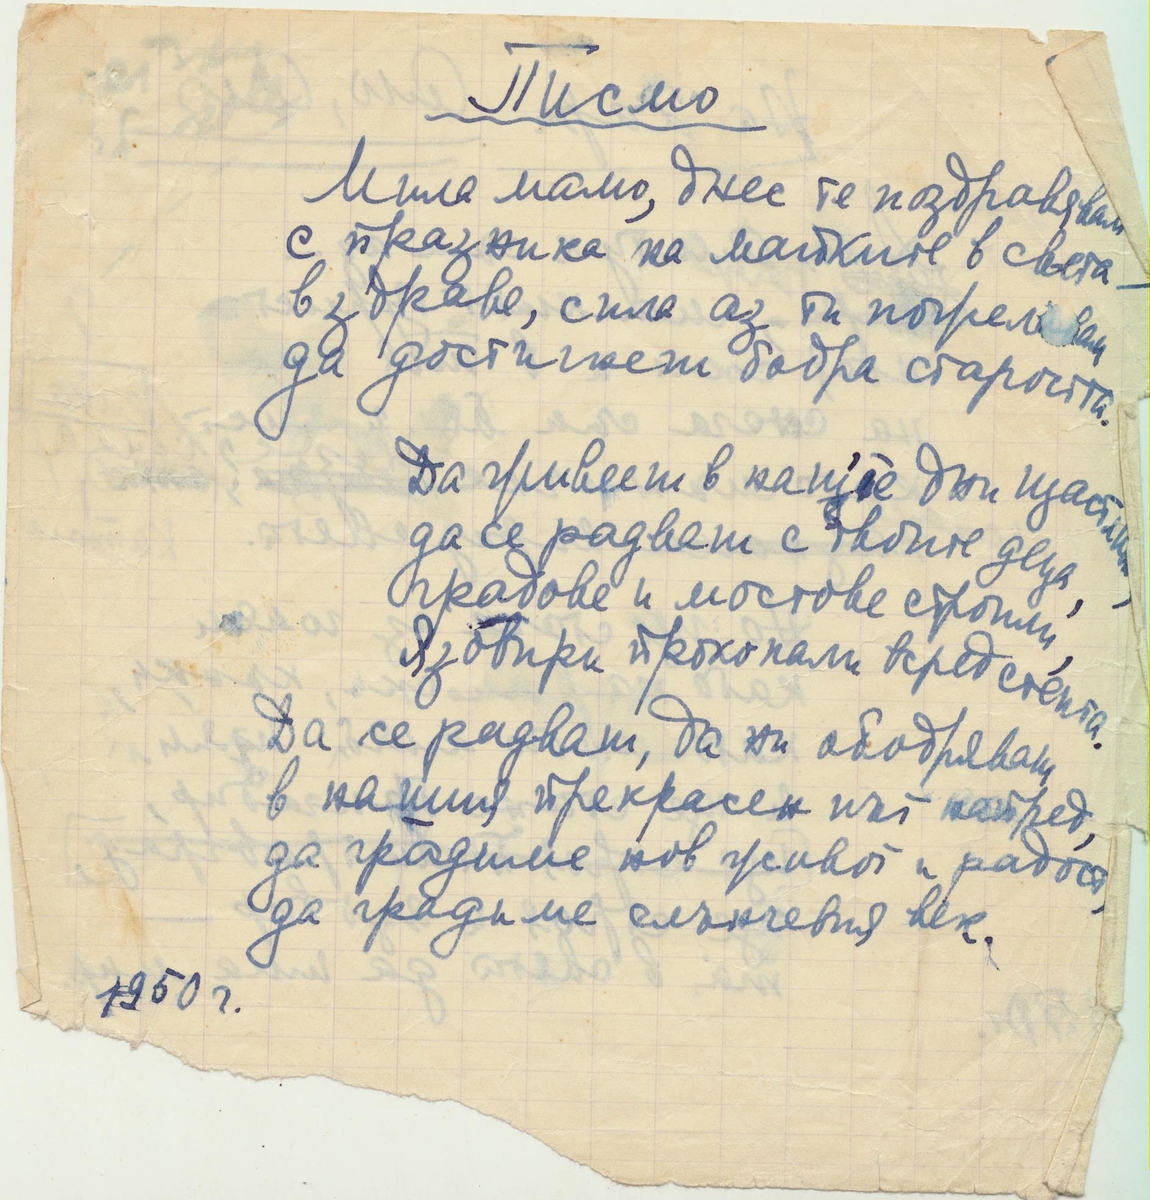 Писмо
Мила мамо, днес те поздравявам
с празника на майките в света –
в здраве, сила аз ти пожелавам
да достигнеш бодра старостта.
Да живееш в нащте дни щастливи,
да се радваш с твоите деца,
градове и мостове строили,
язовири прокопали всред степта.
Да се радваш, да ни ободряваш
в нашия прекрасен път напред,
да градиме нов живот и радост,
да градиме слънчевия век.
1950 г.